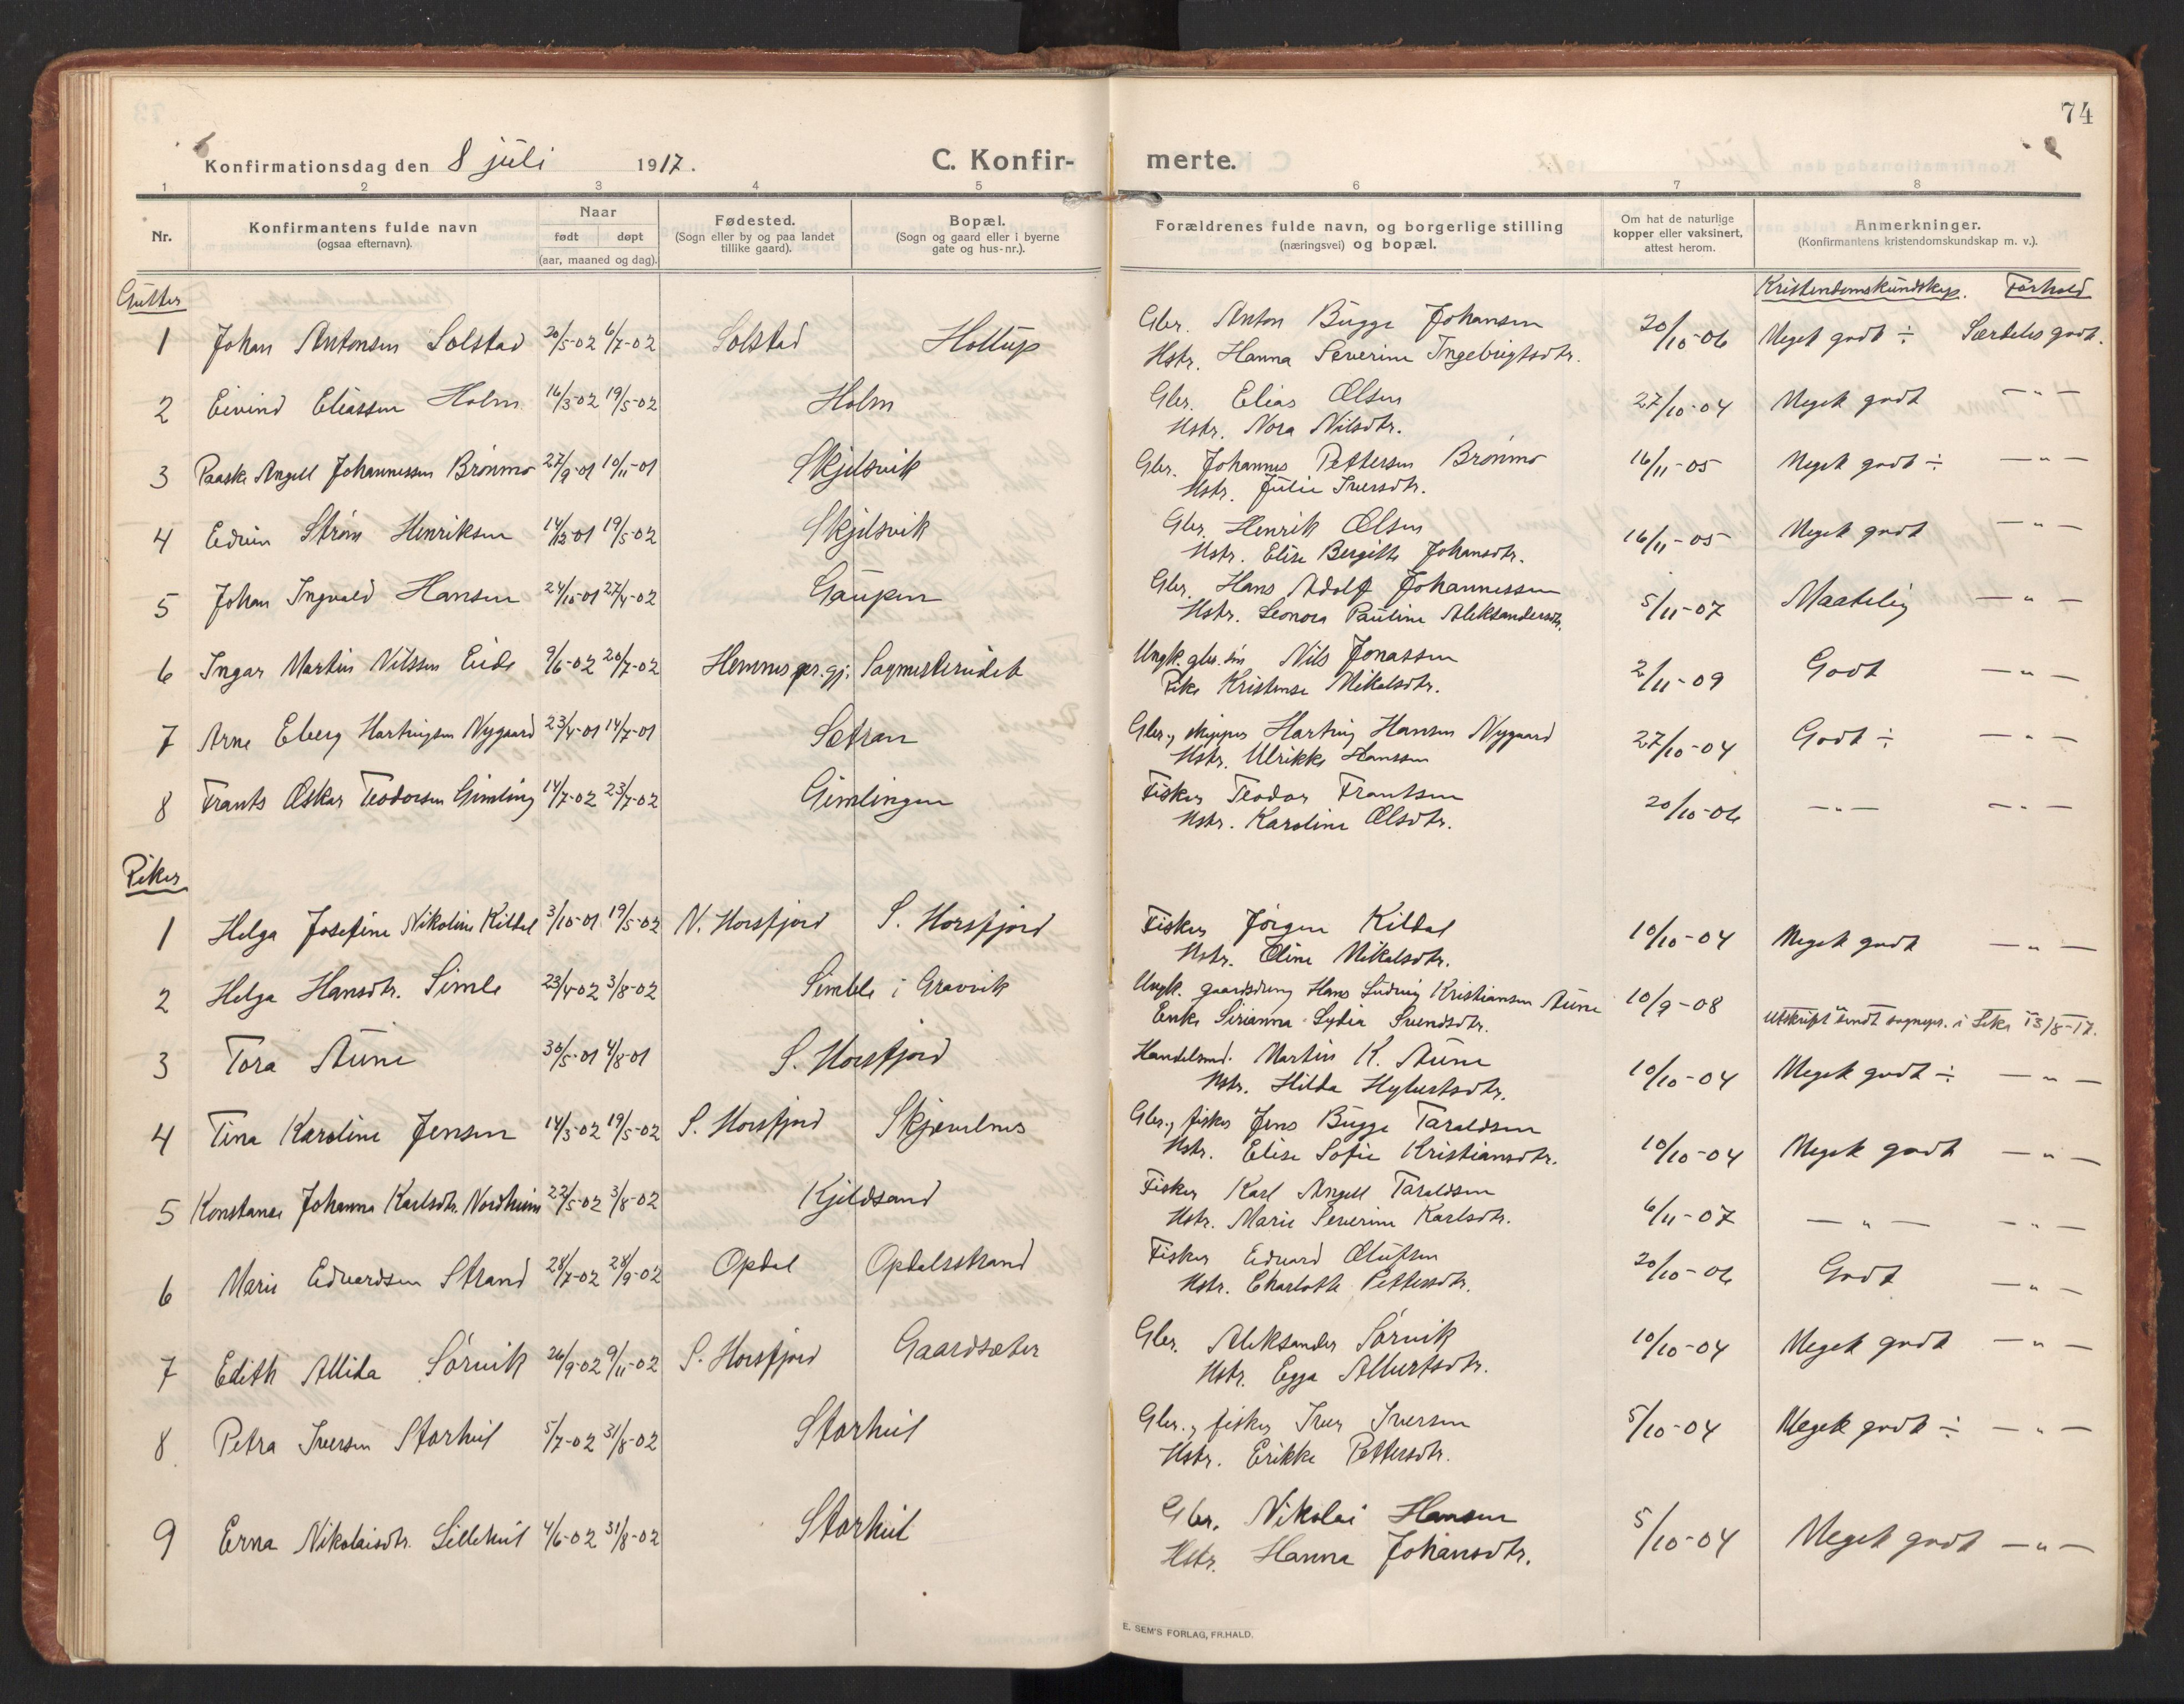 74
Konfirmationsdag den 8 juli 1917. C. Konfir- merte.
1 2 3 4 5 6 7 8
Nr. Konfirmantens fulde navn Naar Fødested. Bopæl. Forældrenes fulde navn, og borgerlige stilling Om hat de naturlige Anmerkninger.
(ogsaa efternavn). født døpt (Sogn eller by og paa landet (Sogn og gaard eller i byerne (næringsvei) og bopæl. kopper eller vaksinert, (Konfirmantens kristendomskundskap m. v.).
(aar, maaned og dag). tillike gaard). gate og hus-nr.). attest herom.
Gutter Kristendomskundskap. Forhold
1 Johan Antonsen Solstad 20/5-02 6/7-02 Solstad Hollup Gbr. Anton Bugge Johansen 20/10-06 Meget godt ÷ Særdeles godt.
Hstr. Hanna Severine Ingebrigtsdtr.
2 Eivind Eliassen Holm 16/3-02 19/5-02 Holm Gbr. Elias Olsen 27/10-04 Meget godt — " —
Hstr. Nora Nilsdtr.
3 Paaske Angell Johannessen Brønmo 27/9-01 10/11-01 Skjelsvik Gbr. Johannes Pettersen Brønmo 16/11-05 Meget godt ÷ — " —
Hstr. Julie Iversdtr.
4 Edvin Strøm Henriksen 14/12-01 19/5-02 Skjelsvik Gbr. Henrik Olsen 16/11-05 Meget godt — " —
Hstr. Elise Bergitte Johansdtr.
5 Johan Ingvald Hansen 24/10-01 27/4-02 Gaupen Gbr. Hans Adolf Johannessen 5/11-07 Maatelig — " —
Hstr. Leonora Pauline Aleksandersdtr.
6 Ingar Martin Nilssen Eide 9/6-02 20/7-02 Hemnes pr.gj. Sagmesterudet Ungk. gbr. søn Nils Jonassen 2/11-09 Godt — " —
Pike Kristense Mikalsdtr.
7 Arne Eberg Hartvigsen Nygaard 23/4-01 14/7-01 Sætran Gbr., skipper Hartvig Hansen Nygaard 27/10-04 Godt ÷ — " —
Hstr. Ulrikke Hanssen
8 Frants Oskar Teodorsen Gimling 14/7-02 23/7-02 Gimlingen Fisker Teodor Frantsen 20/10-06 — " — — " —
Hstr. Karoline Olsdtr.
Piker
1 Helga Josefine Nikoline Kildal 3/10-01 19/5-02 N. Horsfjord S. Horsfjord Fisker Jørgen Kildal 10/10-04 Meget godt — " —
Hstr. Oline Mikalsdtr.
2 Helga Hansdtr. Simle 23/4-02 3/8-02 Simle i Gravvik Ungk. gaardsdreng Hans Ludvig Kristiansen Aune 10/9-08
Enke Sirianna Lydia Svendsdtr. Utskrift sendt sognepr. i Leka 13/8-17.
3 Tora Aune 30/5-01 4/8-01 S. Horsfjord Handelsmd. Martin K. Aune 10/10-04 Meget godt ÷ — " —
Hstr. Hilda Hybertsdtr.
4 Tina Karoline Jensen 14/3-02 19/5-02 S. Horsfjord Skjevelnes Gbr., fisker Jens Bugge Taraldsen 10/10-04 Meget godt — " —
Hstr. Elise Sofie Kristiansdtr.
5 Konstanse Johanna Karlsdtr. Nordheim 22/5-02 3/8-02 Kjeldsand Fisker Karl Angell Taraldsen 6/11-07 — " — — " —
Hstr. Marie Severine Karlsdtr.
6 Marie Edvardsen Strand 28/7-02 28/9-02 Opdal Opdalsstrand Fisker Edvard Olufsen 20/10-06 Godt — " —
Hstr. Charlotte Pettersdtr.
7 Edith Allida Sørvik 26/9-02 9/11-02 S. Horsfjord Gaardsæter Gbr. Aleksander Sørvik 10/10-04 Meget godt — " —
Hstr. Egga Albertsdtr.
8 Petra Iversen Storhul 5/7-02 31/8-02 Storhul Gbr., fisker Iver Iversen 5/10-04 Meget godt ÷ — " —
Hstr. Erikke Pettersdtr.
9 Erna Nikolaisdtr. Lillehul 4/6-02 31/8-02 Storhul Gbr. Nikolai Hansen 5/10-04 Meget godt — " —
Hstr. Hanna Johansdtr.
E. SEM'S FORLAG, FR.HALD.